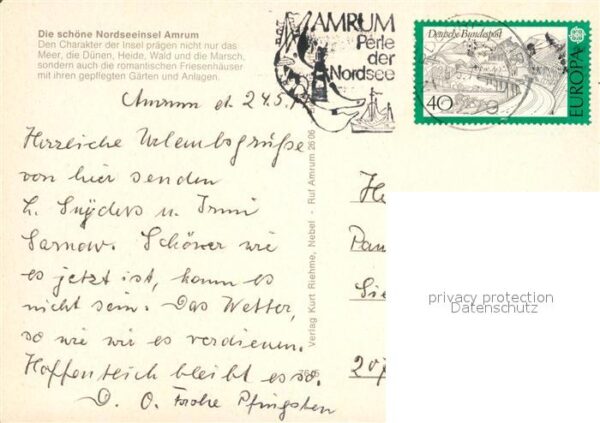 Die schöne Nordseeinsel Amrum
Den Charakter der Insel prägen nicht nur das
Meer, die Dünen, Heide, Wald und die Marsch,
sondern auch die romantischen Friesenhäuser
mit ihren gepflegten Gärten und Anlagen.
AMRUM
Perle
der
Nordsee
Deutsche Bundespost
40
EUROPA
Amrum d. 24.5.
Herzliche Urlaubsgrüße
von hier senden
L. Snyders u. Irmi
Sarnow. Schöner wie
es jetzt ist, kann es
nicht sein. Das Wetter,
so wie wir es verdienen.
Hoffentlich bleibt es so.
D. O. Frohe Pfingsten
Verlag Kurt Riehme, Nebel - Ruf Amrum 2606
He
Pau
Sie
207
privacy protection
Datenschutz